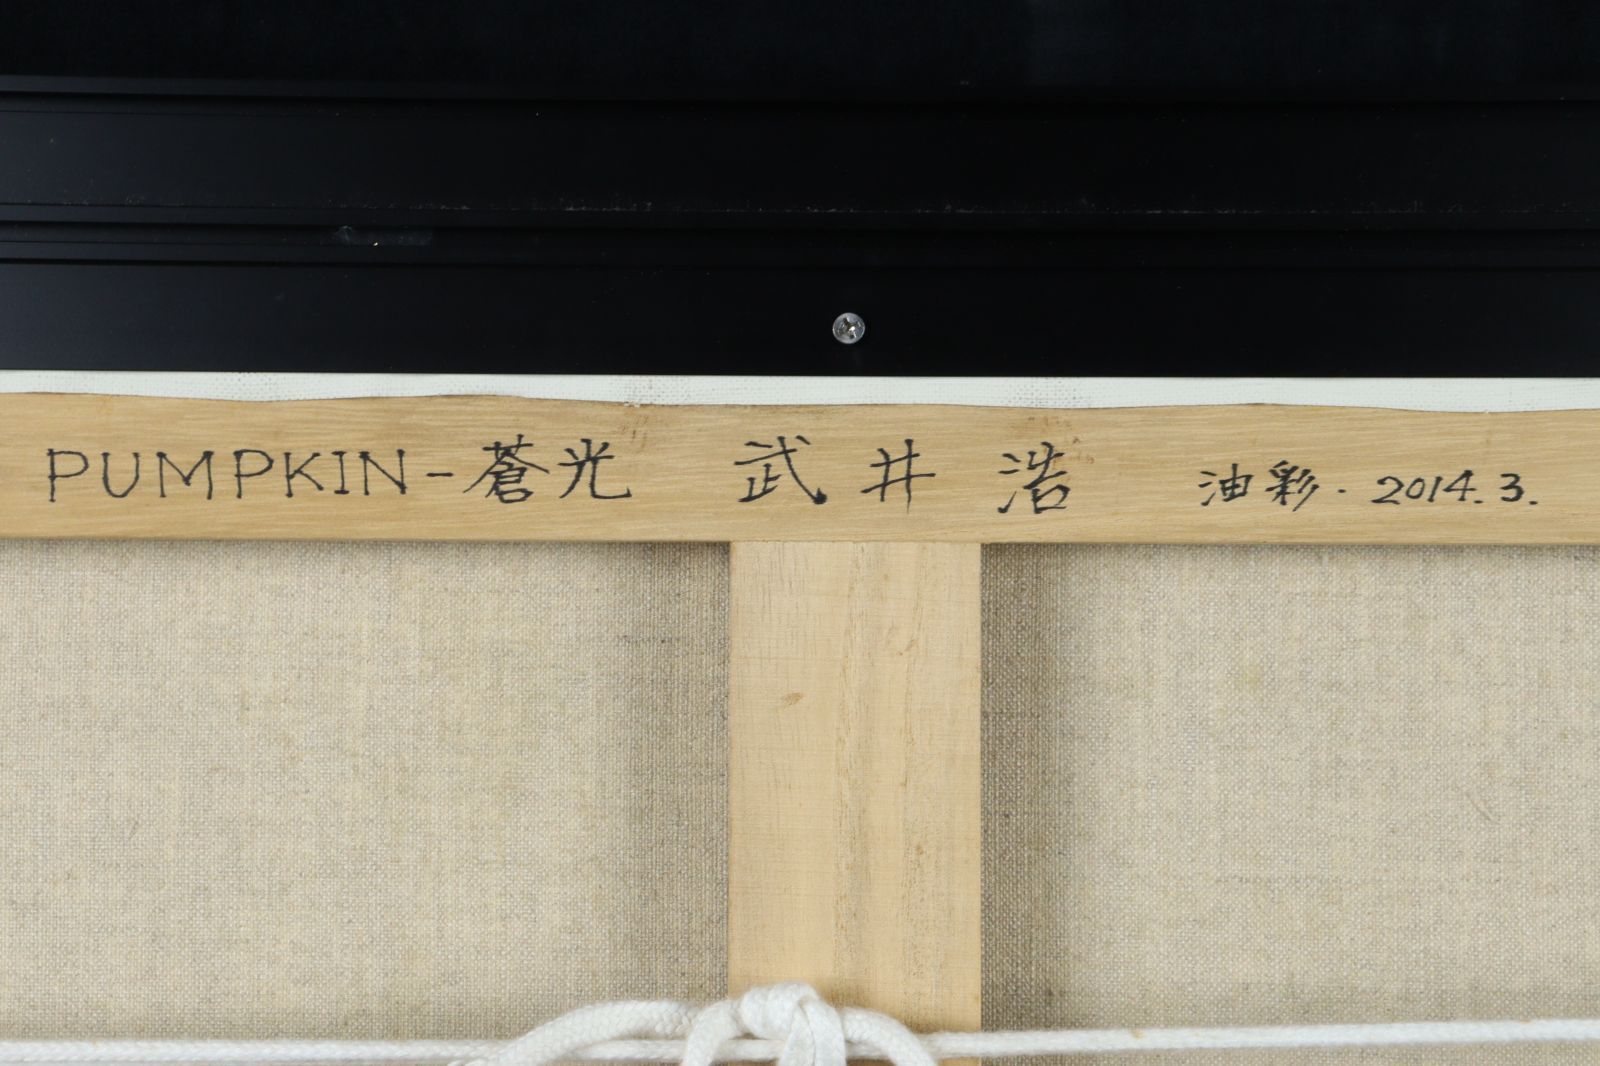 PUMPKIN-蒼光 武井 浩 油彩. 2014.3.